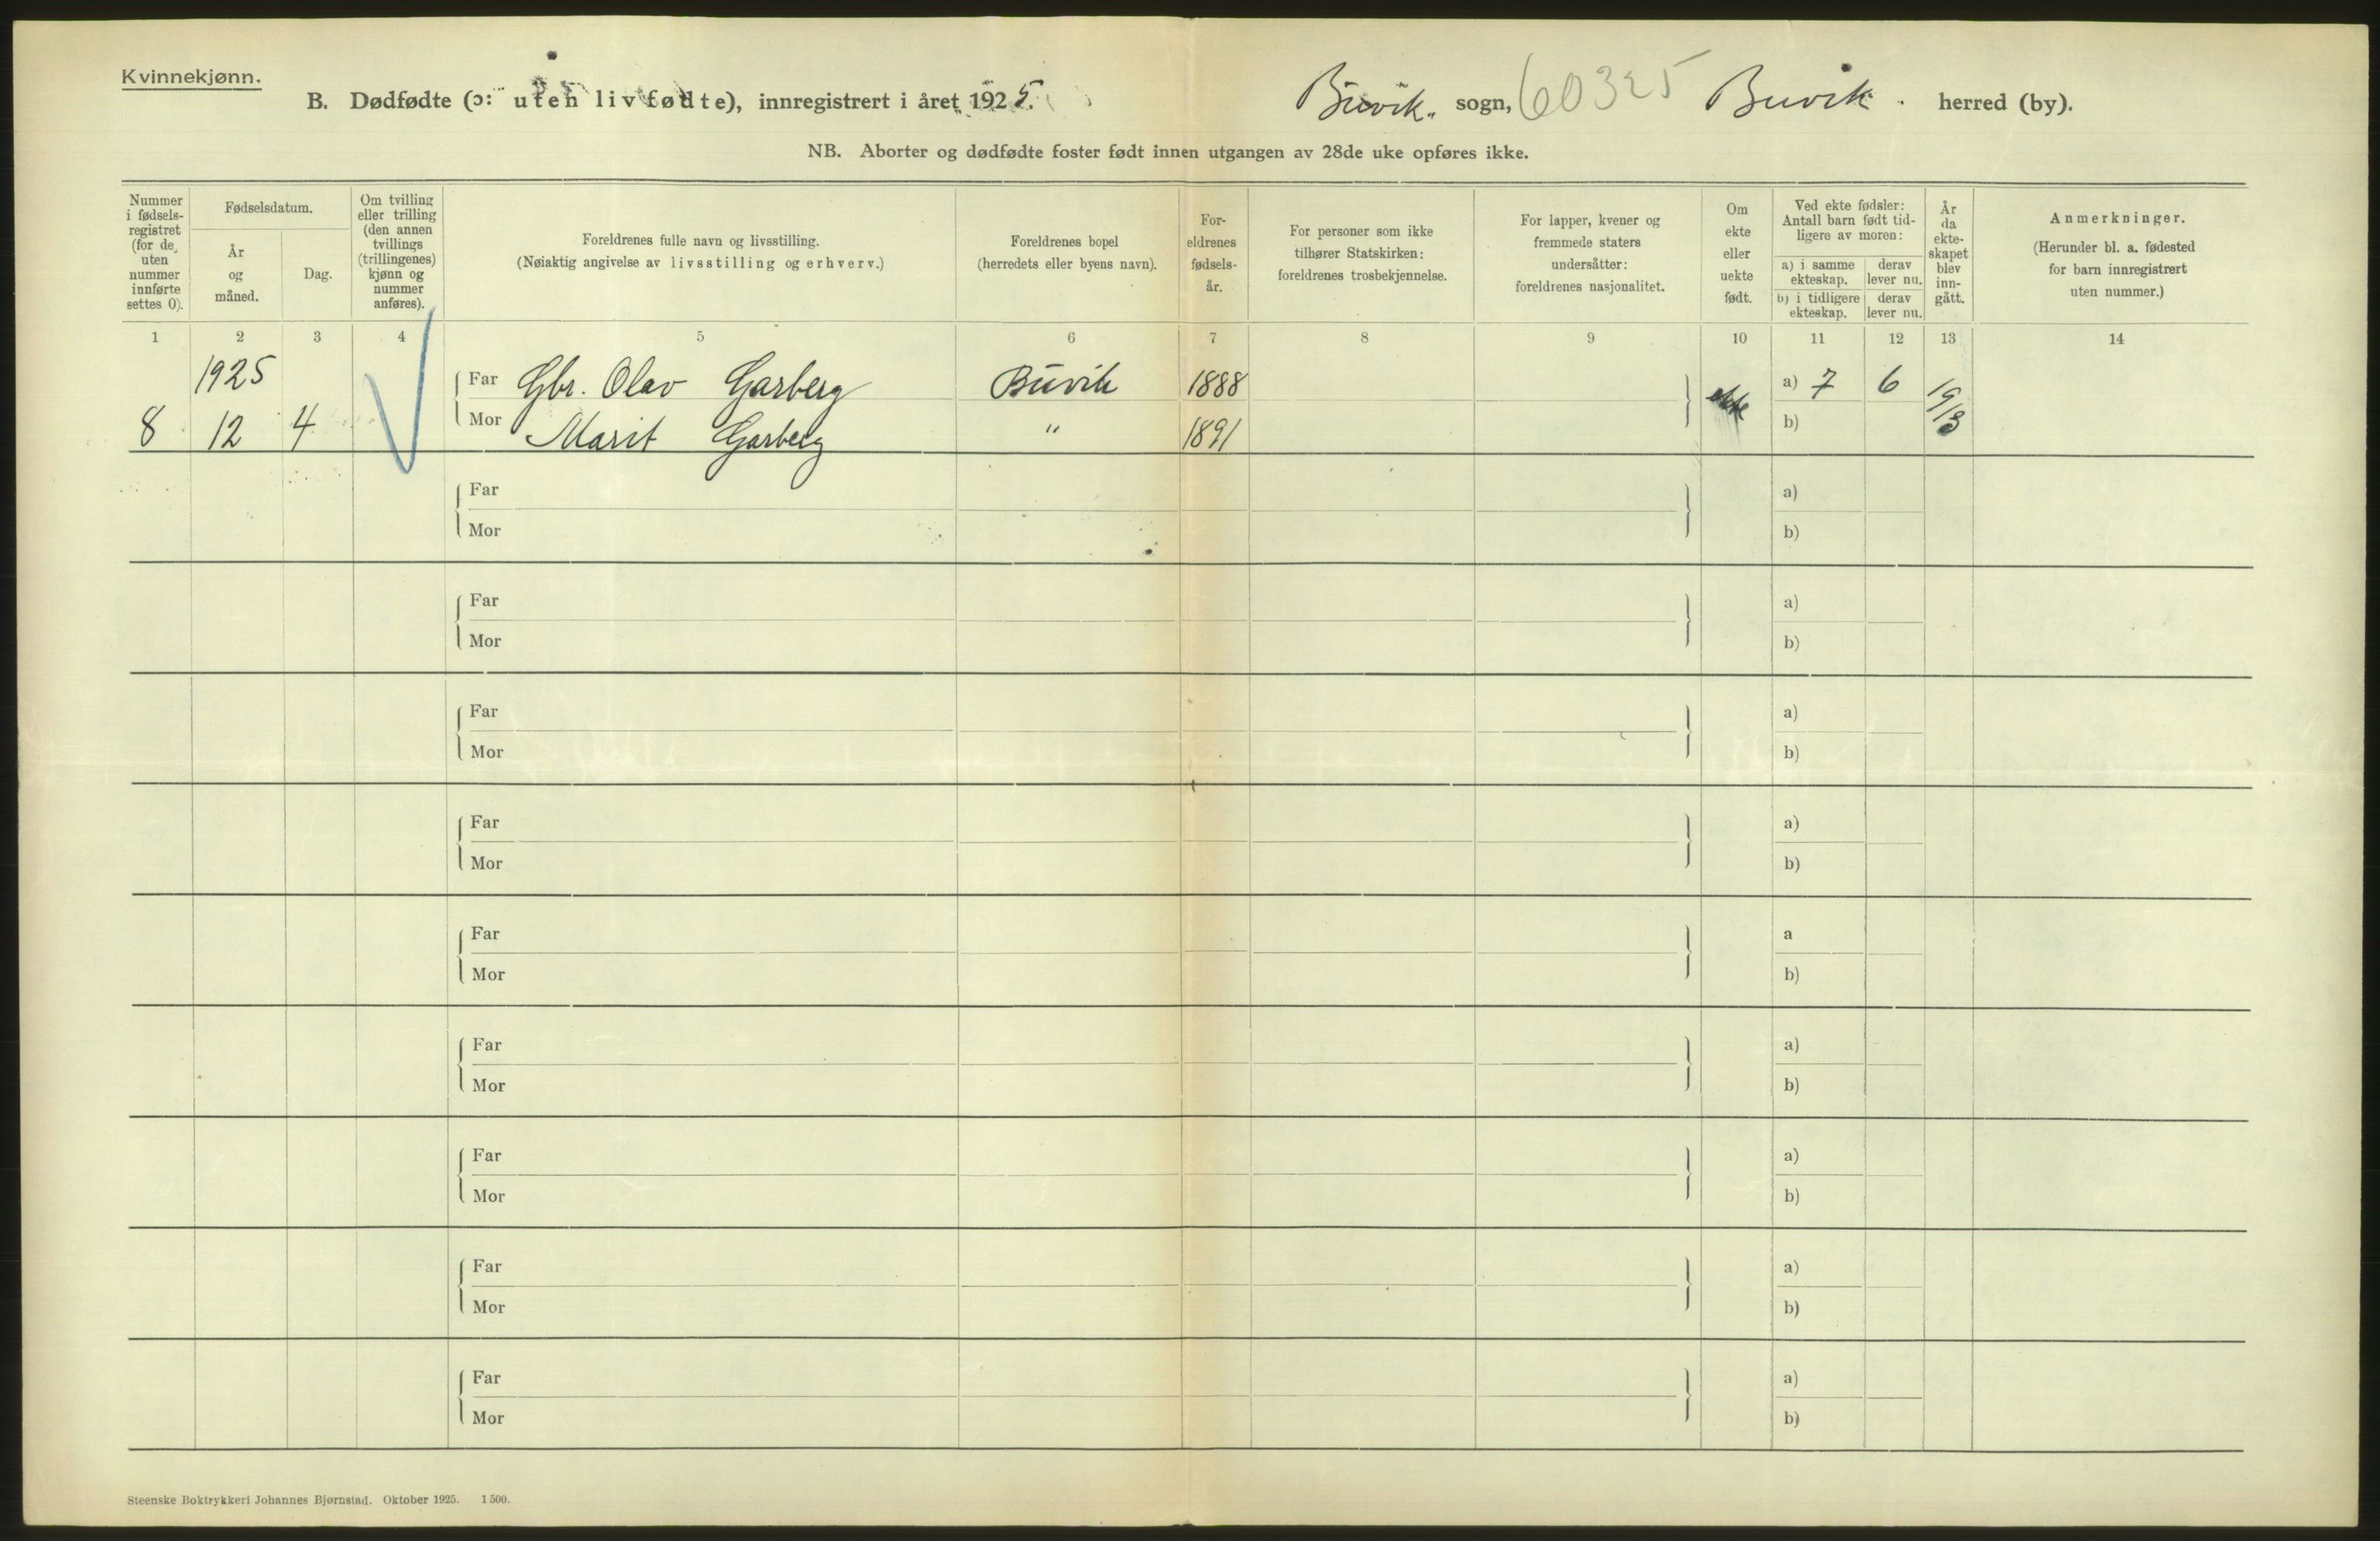 Kvinnekjønn.
B. Dødfødte (ɔ: uten liv fødte), innregistrert i året 1925. Buvik. sogn, 60325 Buvik. herred (by).
NB. Aborter og dødfødte foster født innen utgangen av 28de uke opføres ikke.
Nummer i fødsels-registret (for de uten nummer innførte settes 0).
Fødselsdatum.
År og måned.
Dag.
Om tvilling eller trilling (den annen tvillings (trillingenes) kjønn og nummer anføres).
Foreldrenes fulle navn og livsstilling.
(Nøiaktig angivelse av livsstilling og erhverv.)
Foreldrenes bopel
(herredets eller byens navn).
For-eldrenes fødsels-år.
For personer som ikke tilhører Statskirken: foreldrenes trosbekjennelse.
For lapper, kvener og fremmede staters undersåtter: foreldrenes nasjonalitet.
Om ekte eller uekte født.
Ved ekte fødsler: Antall barn født tid-ligere av moren:
a) i samme ekteskap.
derav lever nu.
b) i tidligere ekteskap.
derav lever nu.
År da ekte-skapet blev inn-gått.
Anmerkninger.
(Herunder bl. a. fødested for barn innregistrert uten nummer.)
1 2 3 4 5 6 7 8 9 10 11 12 13 14
1925 Far Gbr. Olav Garberg Buvik 1888 ekte a) 7 6 1913
8 12 4 Mor Marit Garberg " 1891 b)
Far a)
Mor b)
Far a)
Mor b)
Far a)
Mor b)
Far a)
Mor b)
Far a
Mor b)
Far a)
Mor b)
Far a)
Mor b)
Far a)
Mor b)
Far a)
Mor b)
Steenske Boktrykkeri Johannes Bjørnstad. Oktober 1925. 1500.